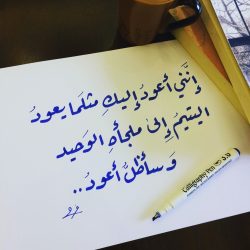 إنَّني أعودُ إليكِ مثلَما يعودُ
اليتيمُ إلىٰ ملجأهِ الوَحيد
وَسأظلُّ أعودُ..
Calligraphy Pen